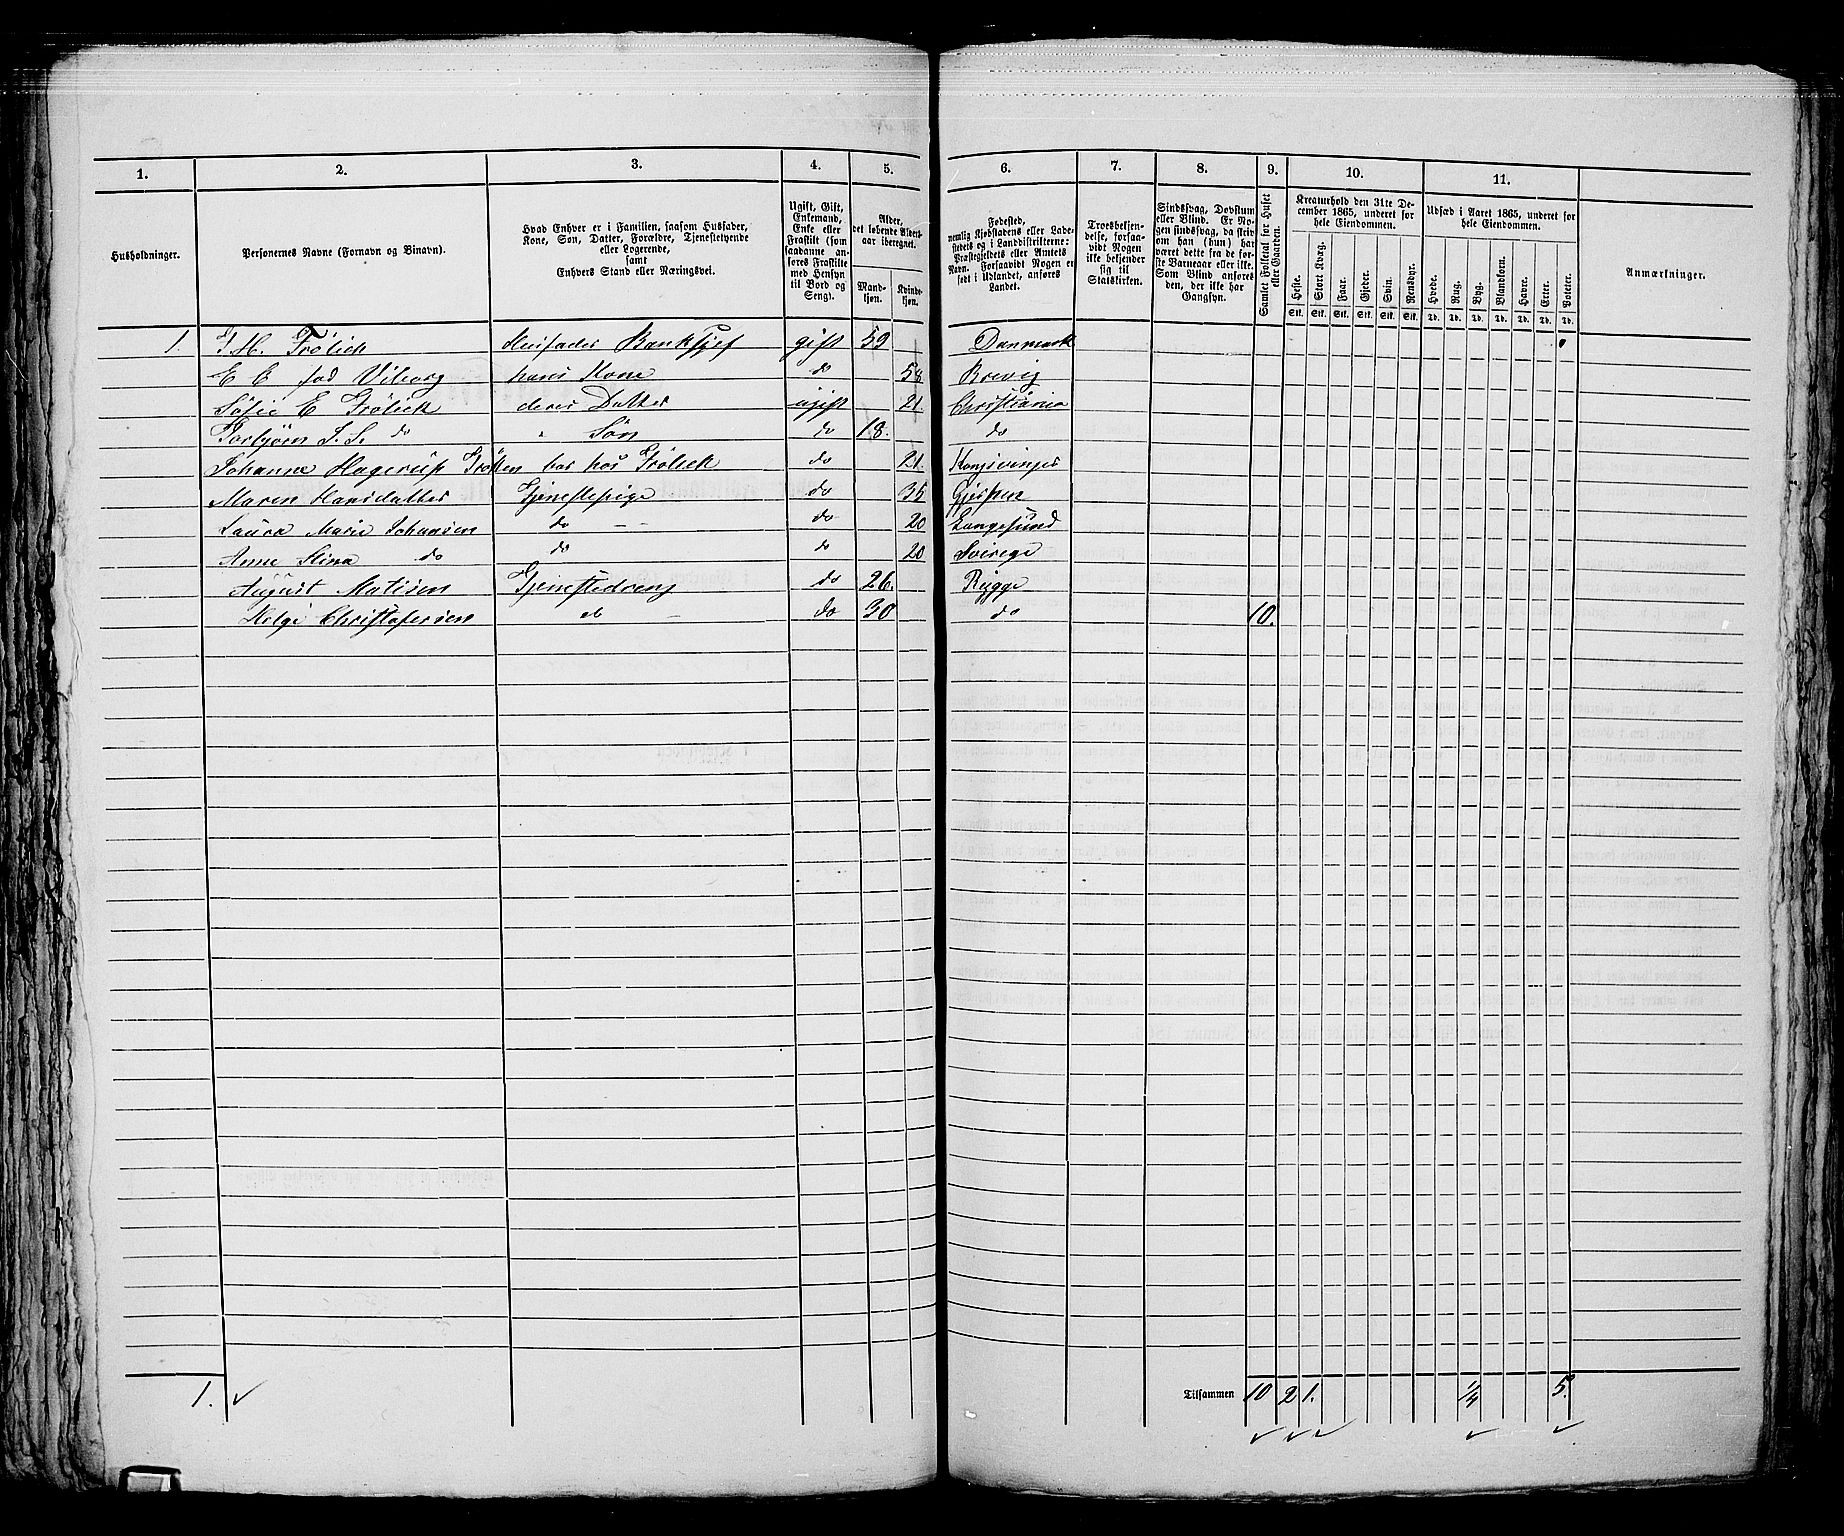 1. 2. 3. 4. 5. 6. 7. 8. 9. 10. 11.
Husholdninger.
Personernes Navne (Fornavn og Binavn).
Hvad Enhver er i Familien, saasom Husfader,
Kone, Søn, Datter, Forældre, Tjenestetyende
eller Logerende,
samt
Enhvers Stand eller Næringsvei.
Ugift, Gift,
Enkemand,
Enke eller
Fraskilt (som
saadanne an-
føres Fraskilte
med Hensyn
til Bord og
Seng).
Alder,
det løbende Alders-
aar iberegnet.
Mand-
kjøn.
Kvinde-
kjøn.
Fødested,
nemlig Kjøbstadens eller Lade-
stedets og i Landdistrikterne:
Præstegjeldets eller Annexets
Navn. Forsaavidt Nogen er
født i Udlandet, anføres
Landet.
Troesbekjen-
delse, forsaa-
vidt Nogen
ikke bekjender
sig til
Statskirken.
Sindssvag, Døvstum
eller Blind. Er No-
gen sindssvag, da skriv
om han (hun) har
været dette fra de før-
ste Barneaar eller ikke.
Som Blind anføres
den, der ikke har
Gangsyn.
Samlet Folketal for Huset
eller Gaarden.
Kreaturhold den 31te De-
cember 1865, underet for
hele Eiendommen.
Heste. Stort Kvæg. Faar. Gjeder. Svin. Rensdyr.
Stk. Stk. Stk. Stk. Stk. Stk.
Udsæd i Aaret 1865, underet for
hele Eiendommen.
Hvede. Rug. Byg. Blandkorn. Havre. Erter. Poteter.
Td. Td. Td. Td. Td. Td. Td.
Anmærkninger.
1. J. H. Frölich Husfader Banksjef gift 59 Danmark
E E fød Viborg hans Kone do 58 Brevig
Sofie E Frölich deres Datter ugift 21. Christiania
Torbjörn S. S. do " Sön do 18. do
Johanne Hagerup Frölich bor hos Frölich do 21. Kongsvinger
Maren Hansdatter Tjenestepige do 35 Gjerpen
Laura Marie Johansen do — do 20 Langesund
Anne Stina do do do 20 Sverege
August Matisen Tjenestedreng do 26. Rygge
Helge Christofersen do — do 30 do 10.
1. ✓ Tilsammen 10 2 1. 1/4 5.